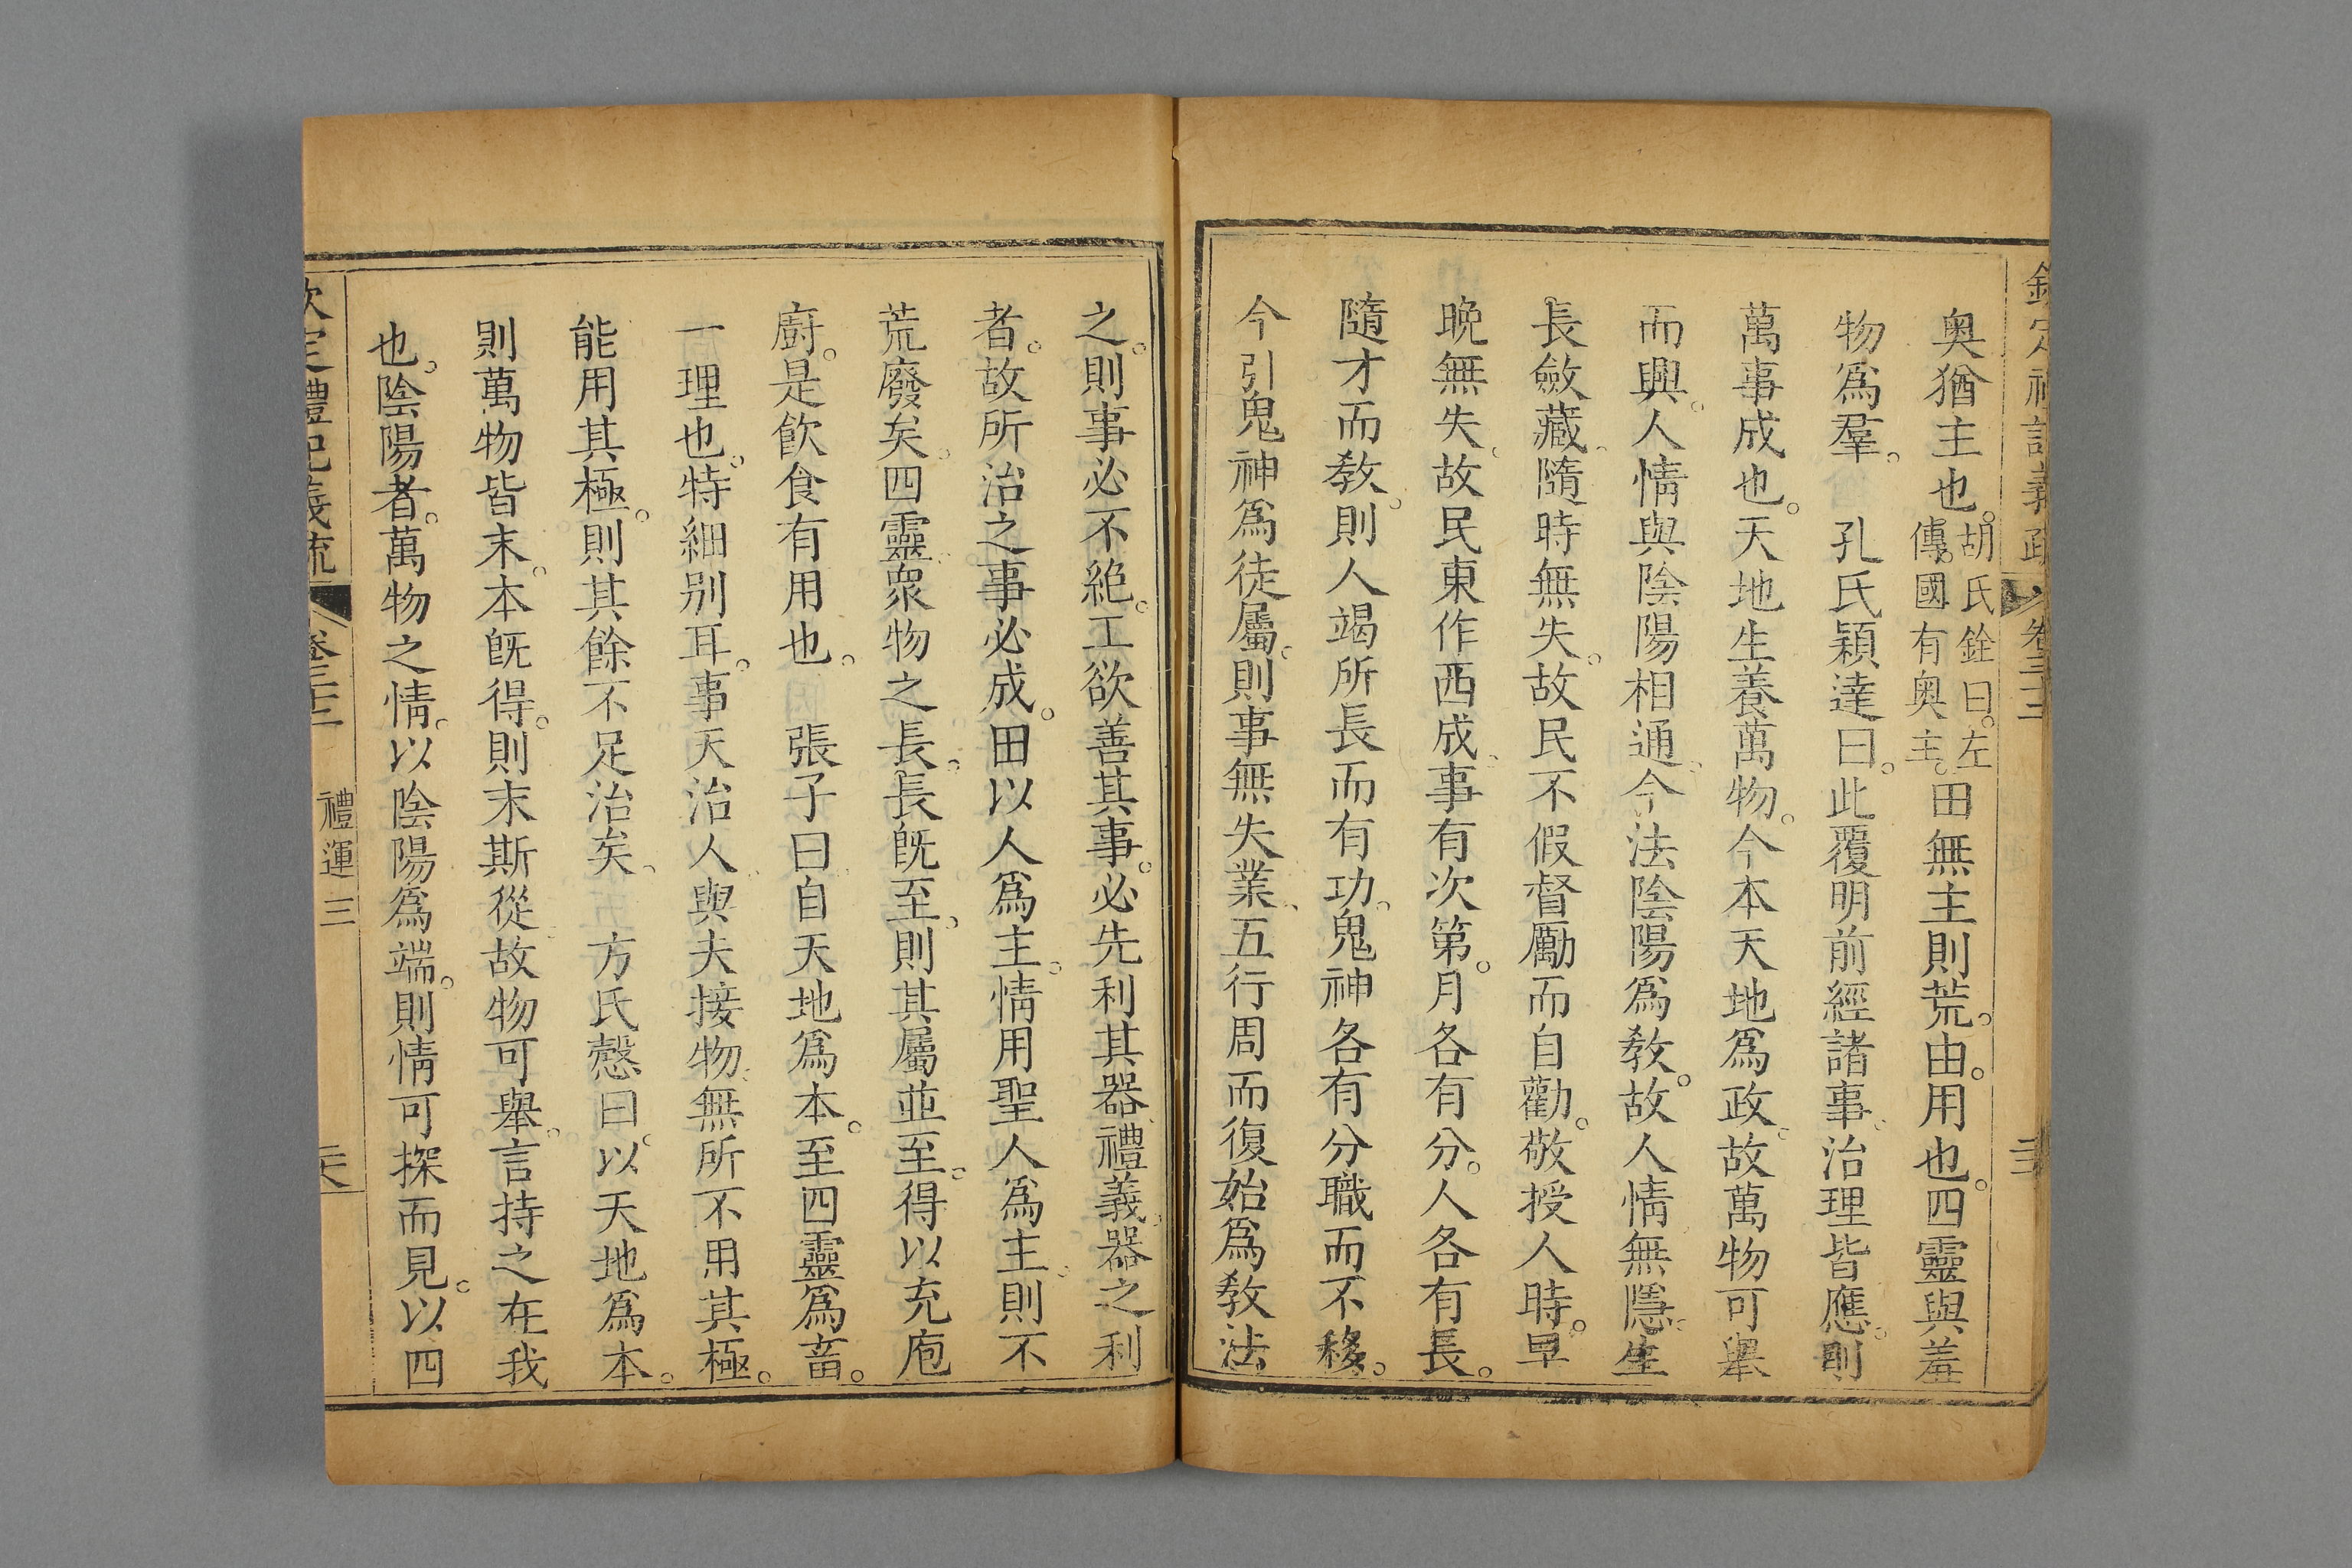 欽定禮記義疏 卷三十三
奥猶主也。胡氏銓曰。左傳。國有奥主。田無主則荒。由。用也。四靈與羞
物爲羣。 孔氏穎達曰。此覆明前經諸事。治理皆應。則
萬事成也。天地生養萬物。今本天地爲政。故萬物可舉
而興。人情與陰陽相通。今法陰陽爲教。故人情無隱。生
長斂藏。隨時無失。故民不假督勵而自勸。敬授人時。早
晩無失。故民東作西成。事有次第。月各有分。人各有長。
隨才而教。則人竭所長而有功。鬼神各有分職而不移。
今引鬼神爲徒屬。則事無失業。五行周而復始爲教法
之。則事必不絶。工欲善其事。必先利其器。禮義器之利
者。故所治之事必成。田以人爲主。情用聖人爲主。則不
荒廢矣。四靈衆物之長。長既至。則其屬並至。得以充庖
廚。是飲食有用也。 張子曰自天地爲本。至四靈爲畜。
一理也。特細别耳。事天治人。與夫接物。無所不用其極。
能用其極。則其餘不足治矣。 方氏慤曰。以天地爲本。
則萬物皆末。本既得。則末斯從。故物可舉。言持之在我
也。陰陽者。萬物之情。以陰陽爲端。則情可探而見。以四
欽定禮記義疏 卷三十三 禮運三 天